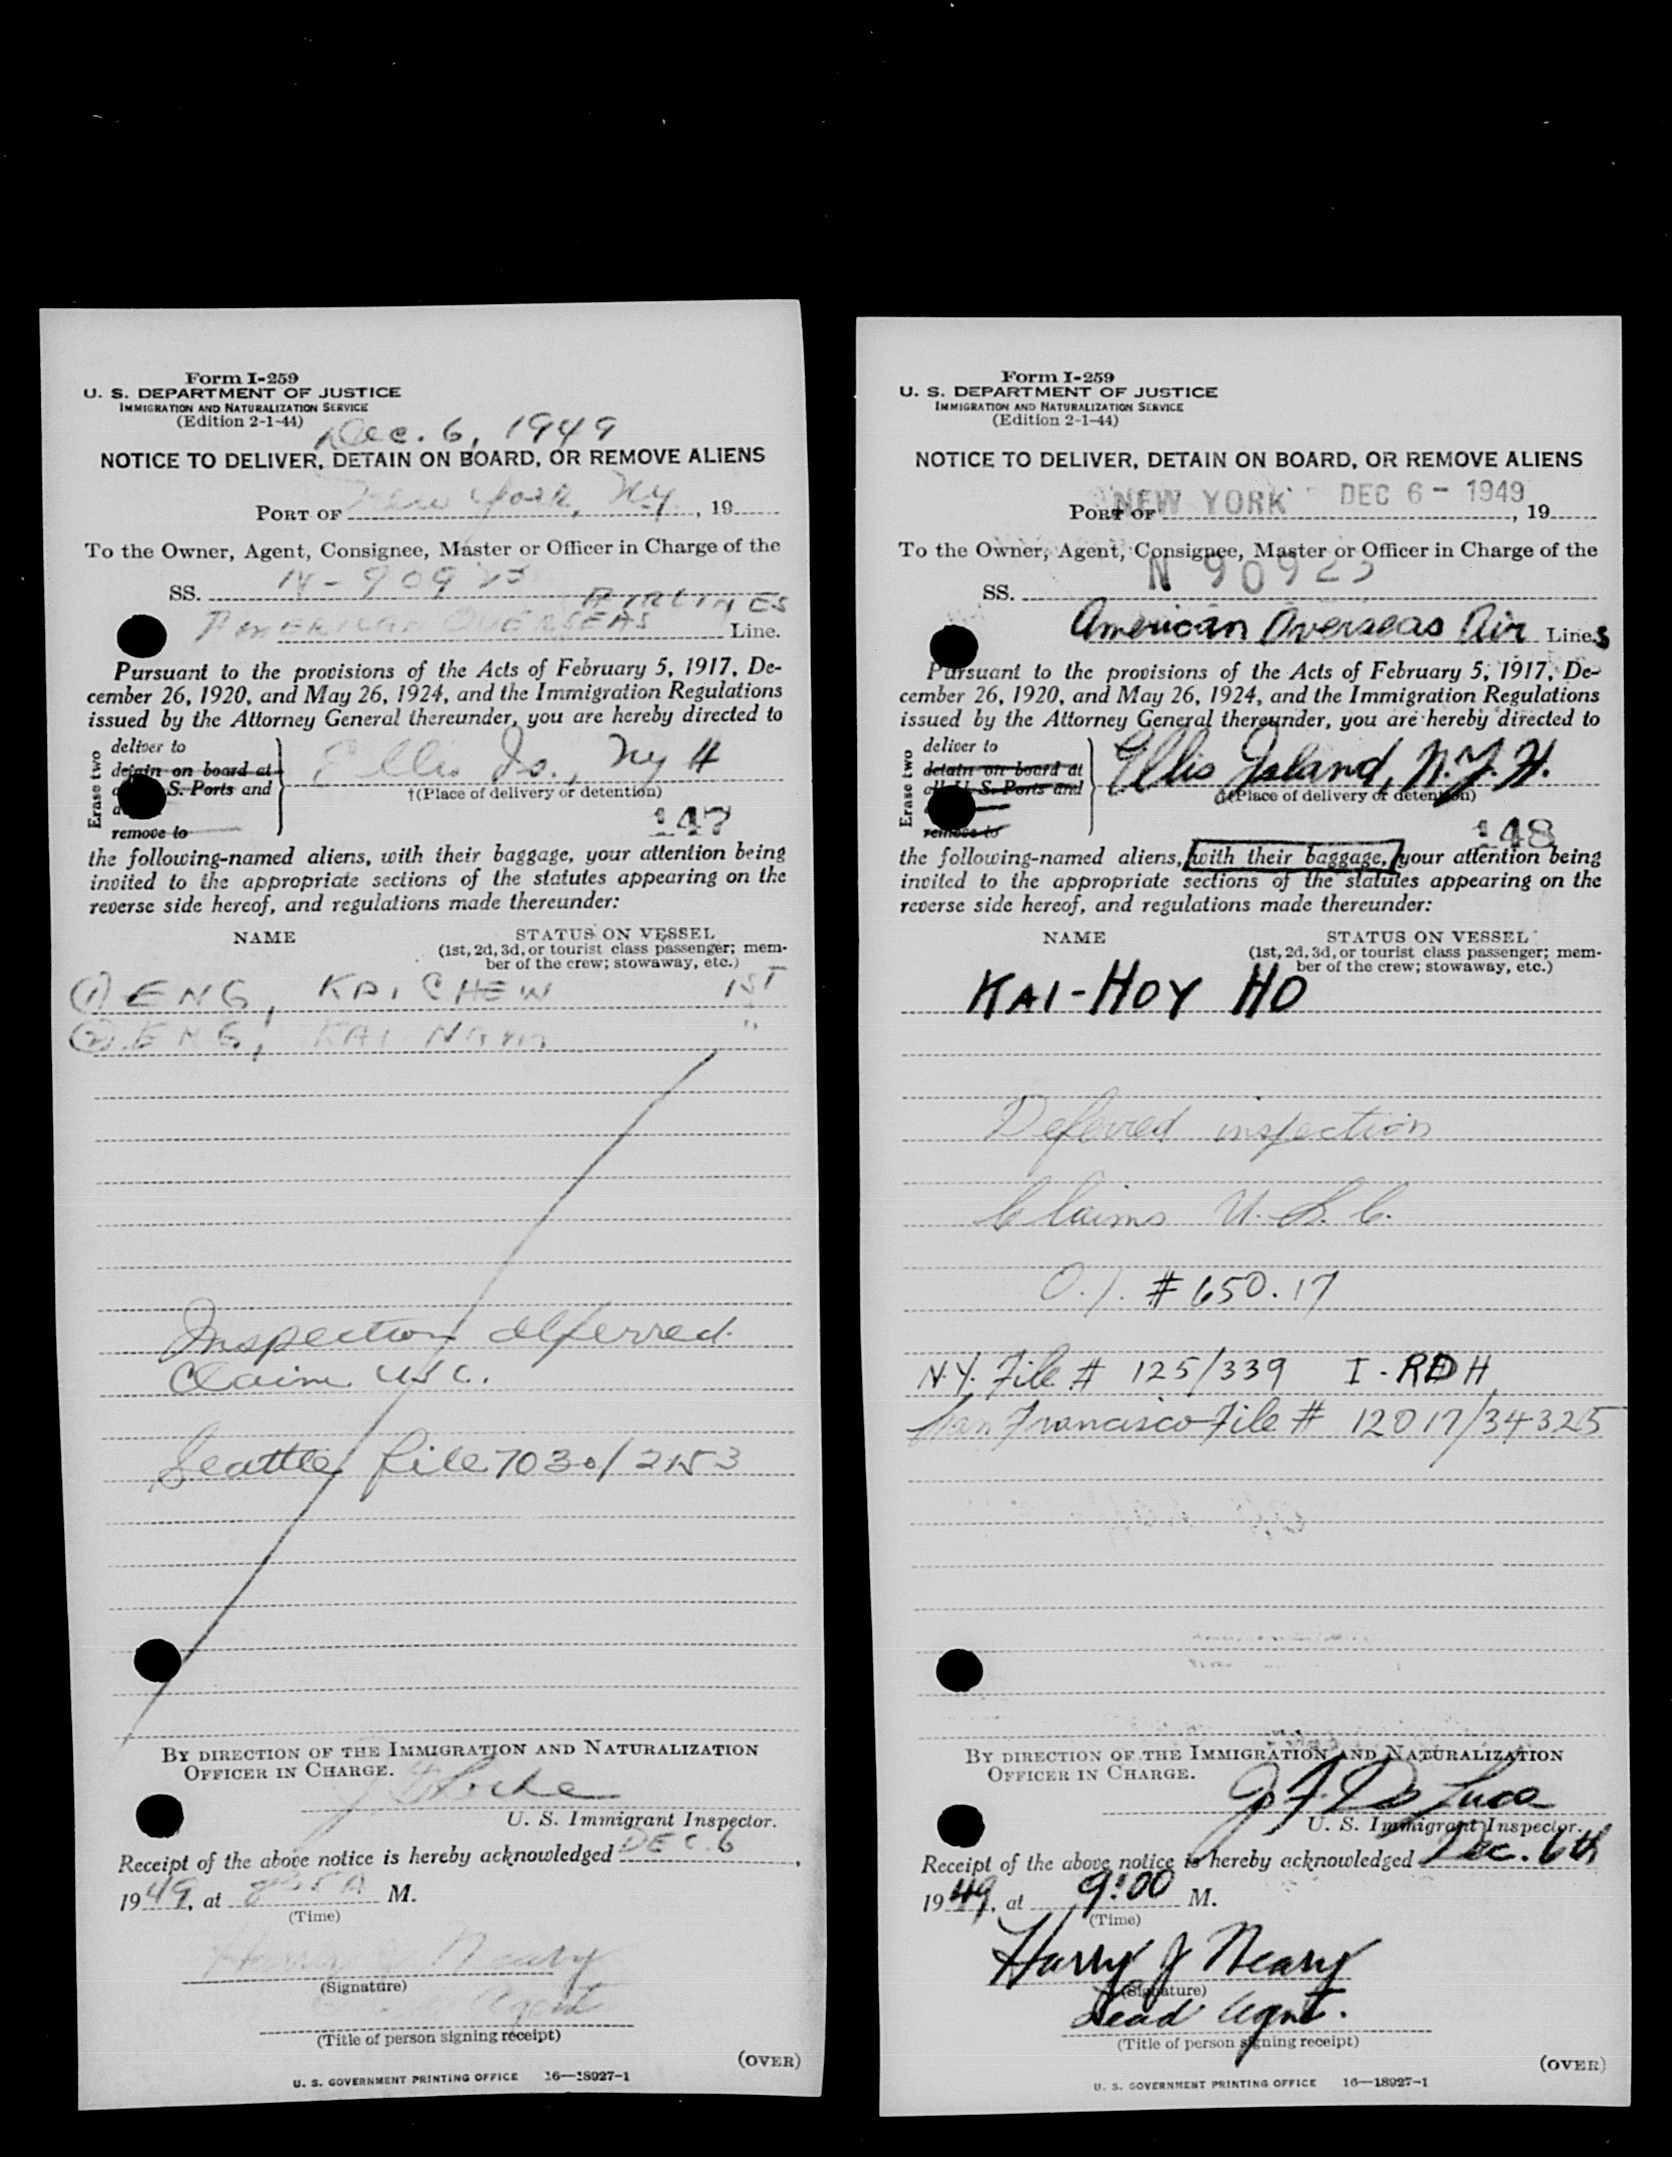 Form I-259
U. S. DEPARTMENT OF JUSTICE
IMMIGRATION AND NATURALIZATION SERVICE
(Edition 2-1-44)
Dec. 6, 1949
NOTICE TO DELIVER, DETAIN ON BOARD, OR REMOVE ALIENS
PORT OF New York, NY, 19
To the Owner, Agent, Consignee, Master or Officer in Charge of the
SS. N-90923
AMERICAN OVERSEAS AIRLINES Line.
Pursuant to the provisions of the Acts of February 5, 1917, De-
cember 26, 1920, and May 26, 1924, and the Immigration Regulations
issued by the Attorney General thereunder, you are hereby directed to
Erase two
deliver to
detain on board at
S. Ports and
remove to
Ellis Is., NY H
†(Place of delivery or detention)
147
the following-named aliens, with their baggage, your attention being
invited to the appropriate sections of the statutes appearing on the
reverse side hereof, and regulations made thereunder:
NAME STATUS ON VESSEL
(1st, 2d, 3d, or tourist class passenger; mem-
ber of the crew; stowaway, etc.)
(1) ENG, KAI CHEW 1ST
(2) ENG, KAI NAM "
Inspection deferred.
Claim USC.
Seattle file 7030/2153
BY DIRECTION OF THE IMMIGRATION AND NATURALIZATION
OFFICER IN CHARGE.
U. S. Immigrant Inspector.
Receipt of the above notice is hereby acknowledged DEC. 6,
1949, at A M.
(Time)
Harry J Neary
(Signature)
Agent
(Title of person signing receipt)
(OVER)
U. S. GOVERNMENT PRINTING OFFICE 16—18927-1
Form I-259
U. S. DEPARTMENT OF JUSTICE
IMMIGRATION AND NATURALIZATION SERVICE
(Edition 2-1-44)
NOTICE TO DELIVER, DETAIN ON BOARD, OR REMOVE ALIENS
PORT OF NEW YORK DEC 6 - 1949, 19
To the Owner, Agent, Consignee, Master or Officer in Charge of the
SS. N 90923
American Overseas Air Lines
Pursuant to the provisions of the Acts of February 5, 1917, De-
cember 26, 1920, and May 26, 1924, and the Immigration Regulations
issued by the Attorney General thereunder, you are hereby directed to
Erase two
deliver to
detain on board at
all U. S. Ports and
remove to
Ellis Island, N.Y.H.
(Place of delivery or detention)
148
the following-named aliens, with their baggage, your attention being
invited to the appropriate sections of the statutes appearing on the
reverse side hereof, and regulations made thereunder:
NAME STATUS ON VESSEL
(1st, 2d, 3d, or tourist class passenger; mem-
ber of the crew; stowaway, etc.)
KAI-HOY HO
Deferred inspection
Claims U.S.C.
O.I. # 650.17
N.Y. File # 125/339 I-RDH
San Francisco File # 12017/34325
BY DIRECTION OF THE IMMIGRATION AND NATURALIZATION
OFFICER IN CHARGE.
J. F. De Luca
U. S. Immigrant Inspector.
Receipt of the above notice is hereby acknowledged Dec. 6th
1949, at 9:00 M.
(Time)
Harry J Neary
(Signature)
Lead Agnt.
(Title of person signing receipt)
(OVER)
U. S. GOVERNMENT PRINTING OFFICE 16—18927-1